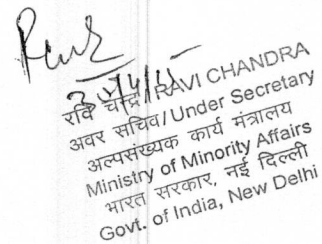 रवि चन्द्र / RAVI CHANDRA
अवर सचिव/Under Secretary
अल्पसंख्यक कार्य मंत्रालय
Ministry of Minority Affairs
भारत सरकार, नई दिल्ली
Govt. of India, New Delhi